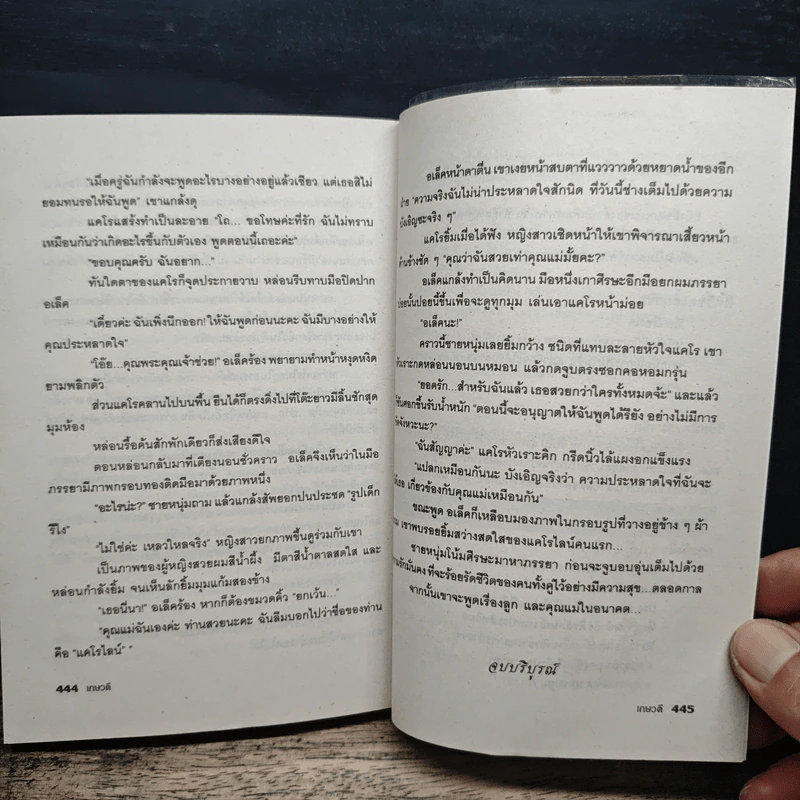 "เมื่อครู่ฉันกำลังจะพูดอะไรบางอย่างอยู่แล้วเชียว แต่เธอสิไม่
ยอมทนรอให้ฉันพูด" เขาแกล้งดุ
แคโรแสร้งทำเป็นละอาย "โถ... ขอโทษค่ะที่รัก ฉันไม่ทราบ
เหมือนกันว่าเกิดอะไรขึ้นกับตัวเอง พูดตอนนี้เถอะค่ะ"
"ขอบคุณครับ ฉันอยาก..."
ทันใดตาของแคโรก็จุดประกายวาบ หล่อนรีบทาบมือปิดปาก
อเล็ค
"เดี๋ยวค่ะ ฉันเพิ่งนึกออก! ให้ฉันพูดก่อนนะคะ ฉันมีบางอย่างให้
คุณประหลาดใจ"
"โอ๊ย...คุณพระคุณเจ้าช่วย!" อเล็คร้อง พยายามทำหน้าหงุดหงิด
ยามพลิกตัว
ส่วนแคโรคลานไปบนพื้น ยืนได้ก็ตรงดิ่งไปที่โต๊ะยาวมีลิ้นชักสุด
มุมห้อง
หล่อนรื้อค้นสักพักเดียวก็ส่งเสียงดีใจ
ตอนหล่อนกลับมาที่เตียงนอนชั่วคราว อเล็คจึงเห็นว่าในมือ
ภรรยามีภาพกรอบทองติดมือมาด้วยภาพหนึ่ง
"อะไรน่ะ?" ชายหนุ่มถาม แล้วแกล้งสัพยอกปนประชด "รูปเด็ก
รึไง"
"ไม่ใช่ค่ะ เหลวไหลจริง" หญิงสาวยกภาพขึ้นดูร่วมกับเขา
เป็นภาพของผู้หญิงสวยผมสีน้ำผึ้ง มีตาสีน้ำตาลสดใส และ
หล่อนกำลังยิ้ม จนเห็นลักยิ้มมุมแก้มสองข้าง
"เธอนี่นา!" อเล็คร้อง หากก็ต้องขมวดคิ้ว "ยกเว้น..."
"คุณแม่ฉันเองค่ะ ท่านสวยนะคะ ฉันลืมบอกไปว่าชื่อของท่าน
คือ "แคโรไลน์" "
444 เกษวดี
อเล็คหน้าตาตื่น เขาเงยหน้าสบตาที่แวววาวด้วยหยาดน้ำของอีก
"ความจริงฉันไม่น่าประหลาดใจสักนิด ที่วันนี้ช่างเต็มไปด้วยความ
บังเอิญซะจริง ๆ"
แคโรยิ้มเมื่อได้ฟัง หญิงสาวเชิดหน้าให้เขาพิจารณาเสี้ยวหน้า
ด้านข้างชัด ๆ "คุณว่าฉันสวยเท่าคุณแม่มั้ยคะ?"
อเล็คแกล้งทำเป็นคิดนาน มือหนึ่งเกาศีรษะอีกมือยกผมภรรยา
ปอยนั้นปอยนี้ขึ้นเพื่อจะดูทุกมุม เล่นเอาแคโรหน้าม่อย
"อเล็คนะ!"
คราวนี้ชายหนุ่มเลยยิ้มกว้าง ชนิดที่แทบละลายหัวใจแคโร เขา
หัวเราะกดหล่อนนอนบนหมอน แล้วก้มจูบตรงซอกคอหอมกรุ่น
"ยอดรัก...สำหรับฉันแล้ว เธอสวยกว่าใครทั้งหมดจ้ะ" และแล้ว
ใช้ศอกขึ้นรับน้ำหนัก "ตอนนี้จะอนุญาตให้ฉันพูดได้รึยัง อย่างไม่มีการ
ขัดจังหวะนะ?"
"ฉันสัญญาค่ะ" แคโรหัวเราะคิก กรีดนิ้วไล้แผงอกแข็งแรง
"แปลกเหมือนกันนะ บังเอิญจริงว่า ความประหลาดใจที่ฉันจะ
เกี่ยวข้องกับคุณแม่เหมือนกัน"
ขณะพูด อเล็คก็เหลือบมองภาพในกรอบรูปที่วางอยู่ข้าง ๆ ผ้า
เขาพบรอยยิ้มสว่างสดใสของแคโรไลน์คนแรก...
ชายหนุ่มโน้มศีรษะมาหาภรรยา ก่อนจะจูบอบอุ่นเต็มไปด้วย
ความรักมั่นคง ที่จะร้อยรัดชีวิตของคนทั้งคู่ไว้อย่างมีความสุข...ตลอดกาล
จากนั้นเขาจะพูดเรื่องลูก และคุณแม่ในอนาคต...
จบบริบูรณ์
เกษวดี 445